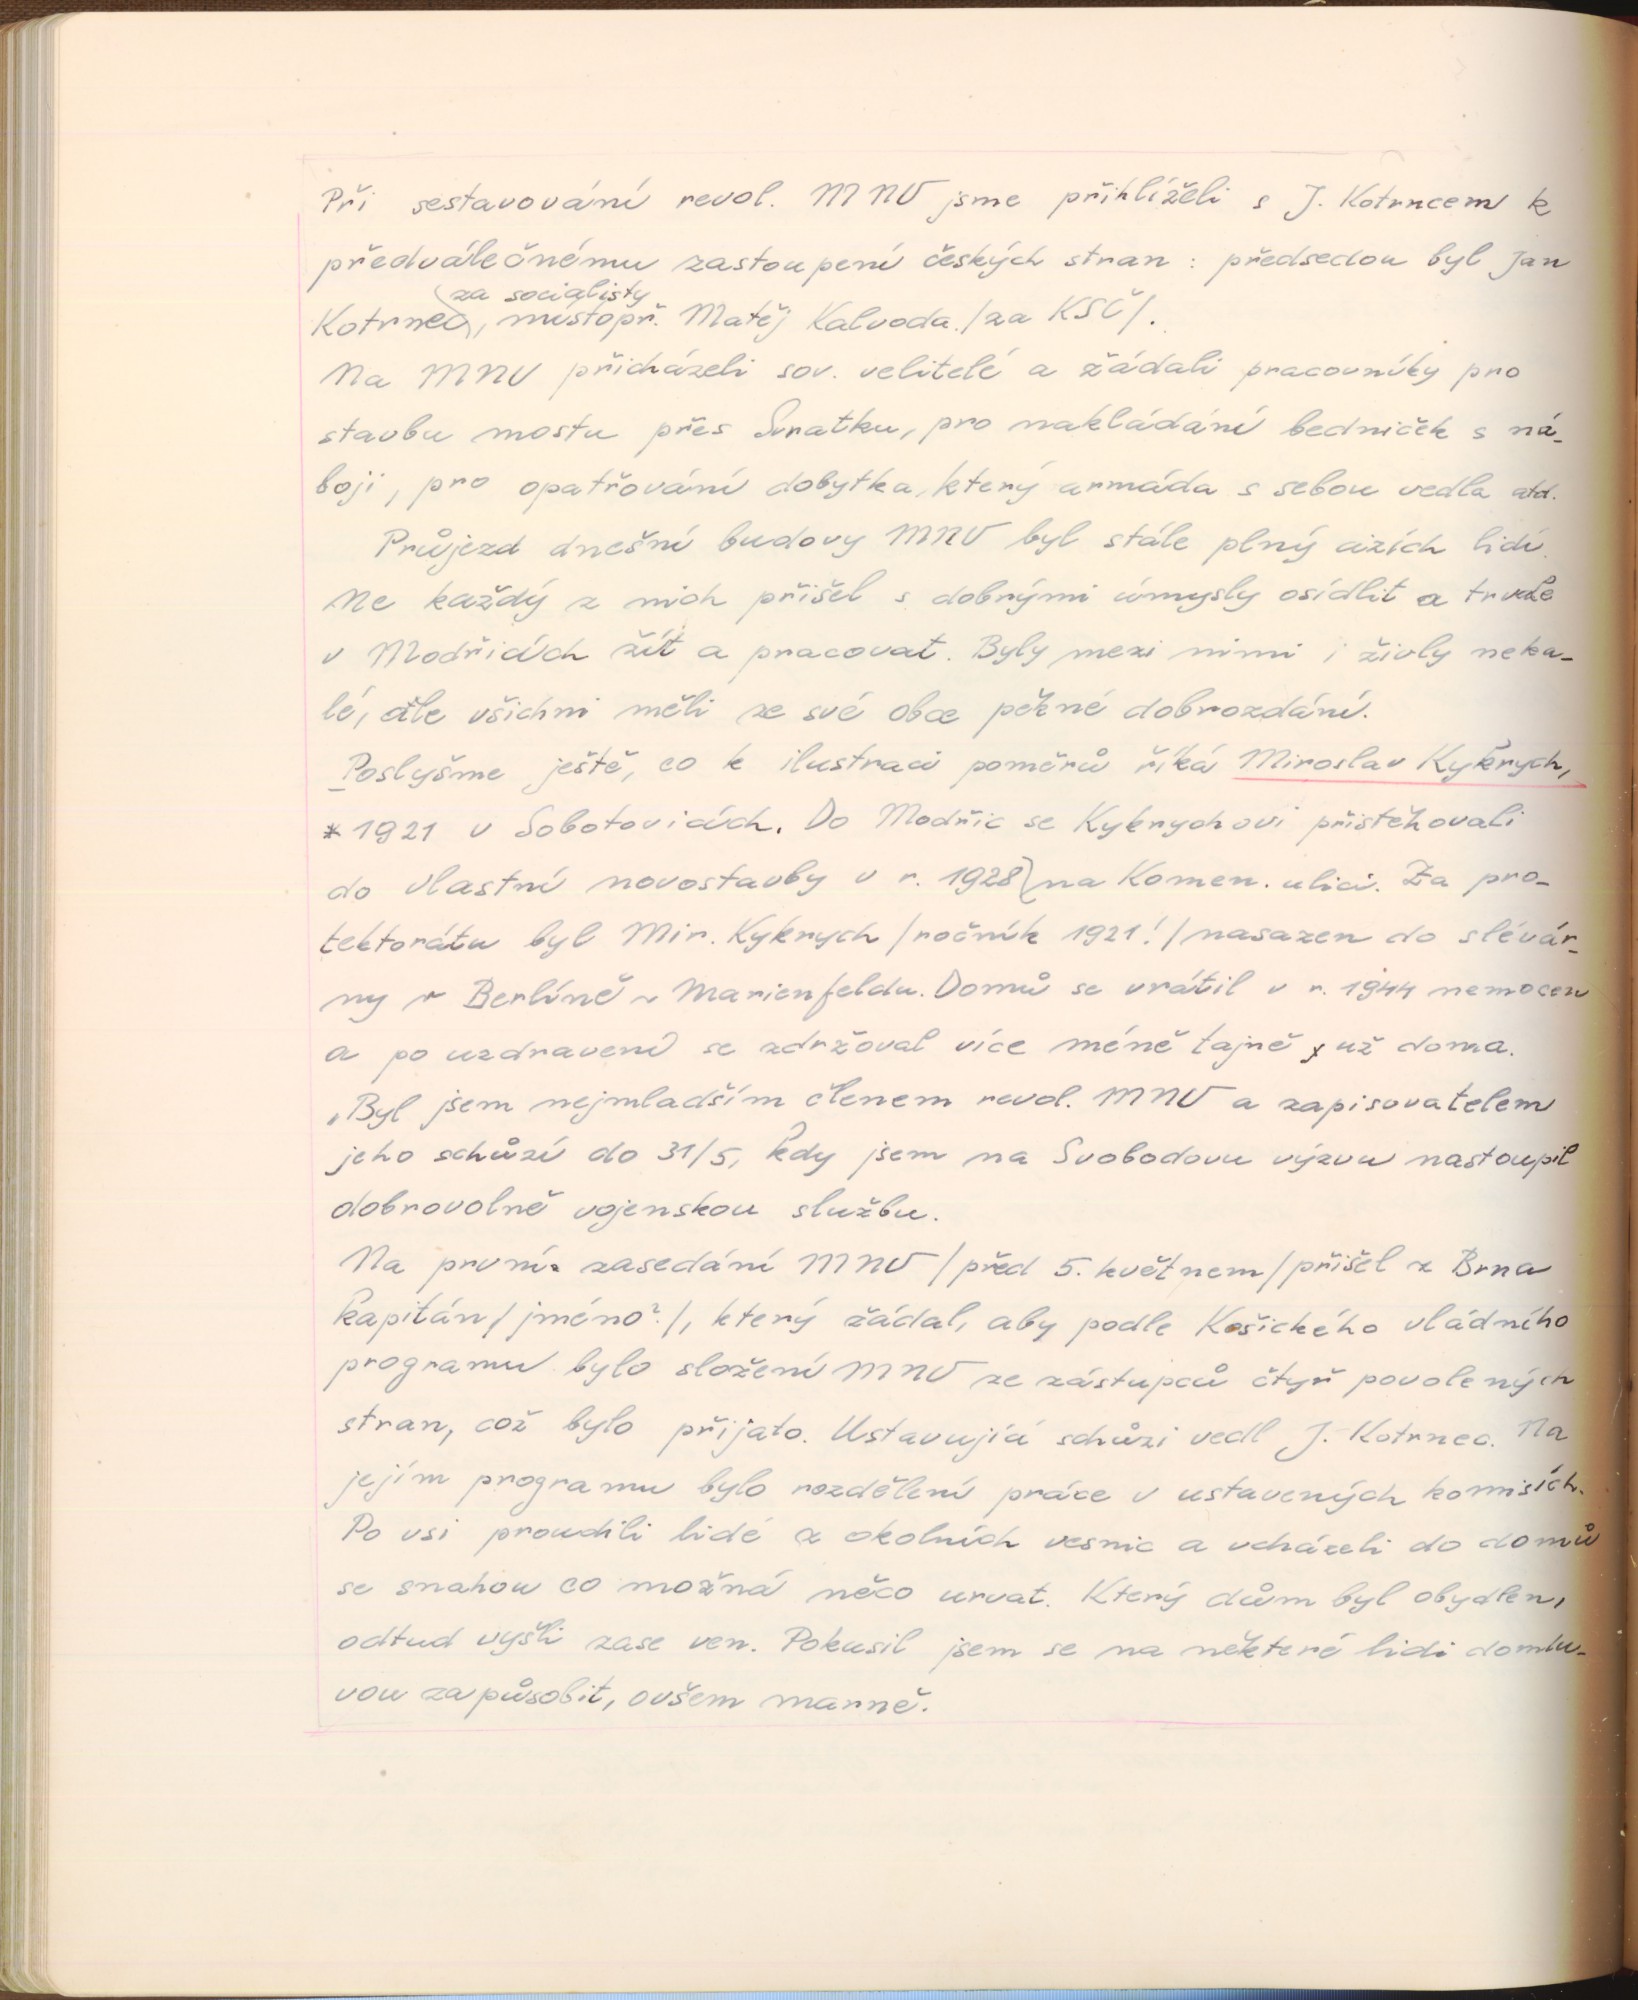 Při sestavování revol. MNV jsme přihlíželi s J. Kotrncem k
předválečnému zastoupení českých stran : předsedou byl Jan
za socialisty
Kotrnec, místopř. Matěj Kalvoda /za KSČ/.
Na MNV přicházeli sov. velitelé a žádali pracovníky pro
stavbu mostu přes Svratku, pro nakládání bedniček s ná-
boji, pro opatřování dobytka, který armáda s sebou vedla atd.
Průjezd dnešní budovy MNV byl stále plný cizích lidí.
Ne každý z nich přišel s dobrými úmysly osídlit a trvale
v Modřicích žít a pracovat. Byly mezi nimi i živly neka-
lé, ale všichni měli ze své obce pěkné dobrozdání.
Poslyšme ještě, co k ilustraci poměrů říká Miroslav Kykrych,
* 1921 v Sobotovicích. Do Modřic se Kykrychovi přistěhovali
do vlastní novostavby v r. 1928 na Komen. ulici. Za pro-
tektorátu byl Mir. Kykrych /ročník 1921!/ nasazen do slévár-
ny v Berlíně v Marienfeldu. Domů se vrátil v r. 1944 nemocen
a po uzdravení se zdržoval více méně tajně už doma.
„Byl jsem nejmladším členem revol. MNV a zapisovatelem
jeho schůzí do 31/5, kdy jsem na Svobodovu výzvu nastoupil
dobrovolně vojenskou službu.
Na první zasedání MNV /před 5. květnem/ přišel z Brna
kapitán /jméno?/, který žádal, aby podle Košického vládního
programu bylo složení MNV ze zástupců čtyř povolených
stran, což bylo přijato. Ustavující schůzi vedl J. Kotrnec. Na
jejím programu bylo rozdělení práce v ustavených komisích.
Po vsi proudili lidé z okolních vesnic a vcházeli do domů
se snahou co možná něco urvat. Který dům byl obydlen,
odtud vyšli zase ven. Pokusil jsem se na některé lidi domlu-
vou zapůsobit, ovšem marně.